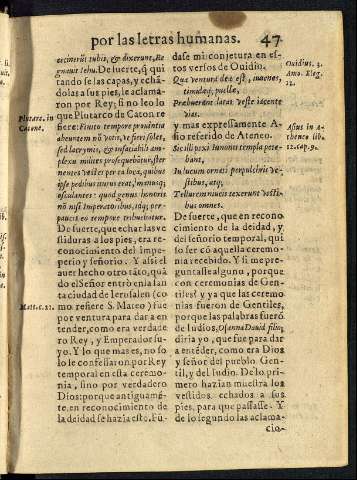 por las letras humanas. 47
cecinerũt tubis, & dixerunt, Re
gnauit Iehu. De suerte, q̃ qui
tando se las capas, y echãdolas a sus pies, le aclamaron por Rey; si no leo lo
que Plutarco de Caton refiere:
Plutarc. in
Catone.
abeuntem
sed lacrymis, & insatiabili amplexu milites
nentes vestes per ea loca, quibus
ipse pedibus iturus erat, manusq;
osculantes: quod genus honoris
nõ nisi Imperatoribus, idq; perpaucis eo tempore tribuebatur.
De suerte, que echar las vestiduras a los pies, era reconocimiento del Imperio y señorio. Y assi el
auer hecho otro tãto, quã
do el Señor entrò en la santa ciudad de Ierusalen (co
mo refiere S. Mateo) fue
Matt. c. 21.
por ventura para dar a en
tender, como era verdadero Rey, y Emperador suyo. Y lo que mas es, no solo le confessaron por Rey
temporal en esta ceremonia, sino por verdadero
Dios: porque antiguamẽte, en reconocimiento de
la deidad se hazia esto. Fũ-
dase mi conjetura en estos versos de Ouidio.
Ouidius. 3.
Amo. Eleg.
12.
Qua ventura dea est, iuuenes,
timidæq; puellæ,
Præbuerant latas veste iacente
vias.
y mas expressamente Asio referido de Ateneo.
Asius in A-
thenco lib.
12. cap. 9.
Sic illi pexi Iunonis templa petebant,
In lucum ornati perpulchris vestibus, atq;
Tellurem niueis texerunt vestibus omnes.
De suerte, que en reconocimiento de la deidad, y
del señorio temporal, qui
so ser cõ aquella ceremonia recebido. Y si me preguntasse alguno, porque
con ceremonias de Gentiles? y ya que las ceremonias fueron de Gentiles,
porque las palabras fuerõ
de Iudios, Osanna Dauid filio,
diria yo, que fue para dar
a entẽder, como era Dios
y señor del pueblo Gentil, y del Iudio. De lo primero hazian muestra los
vestidos echados a sus
pies, para que passasse. Y
de lo segundo las aclama-
cio-